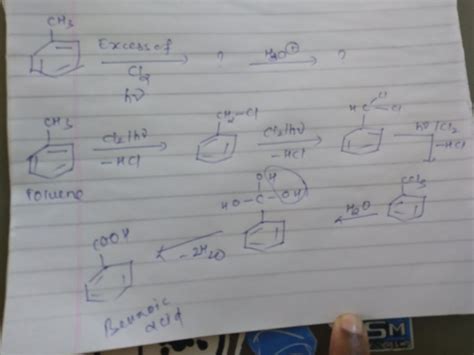 CH₃ Excess of Cl₂ hν ? H₃O⊕ ?
CH₃ Cl₂/hν -HCl CH₂-Cl Cl₂/hν -HCl H C Cl Cl hν/Cl₂ -HCl
Toluene
OH HO-C-OH H₂O CCl₃
COOH -2H₂O
Benzoic
acid
SM